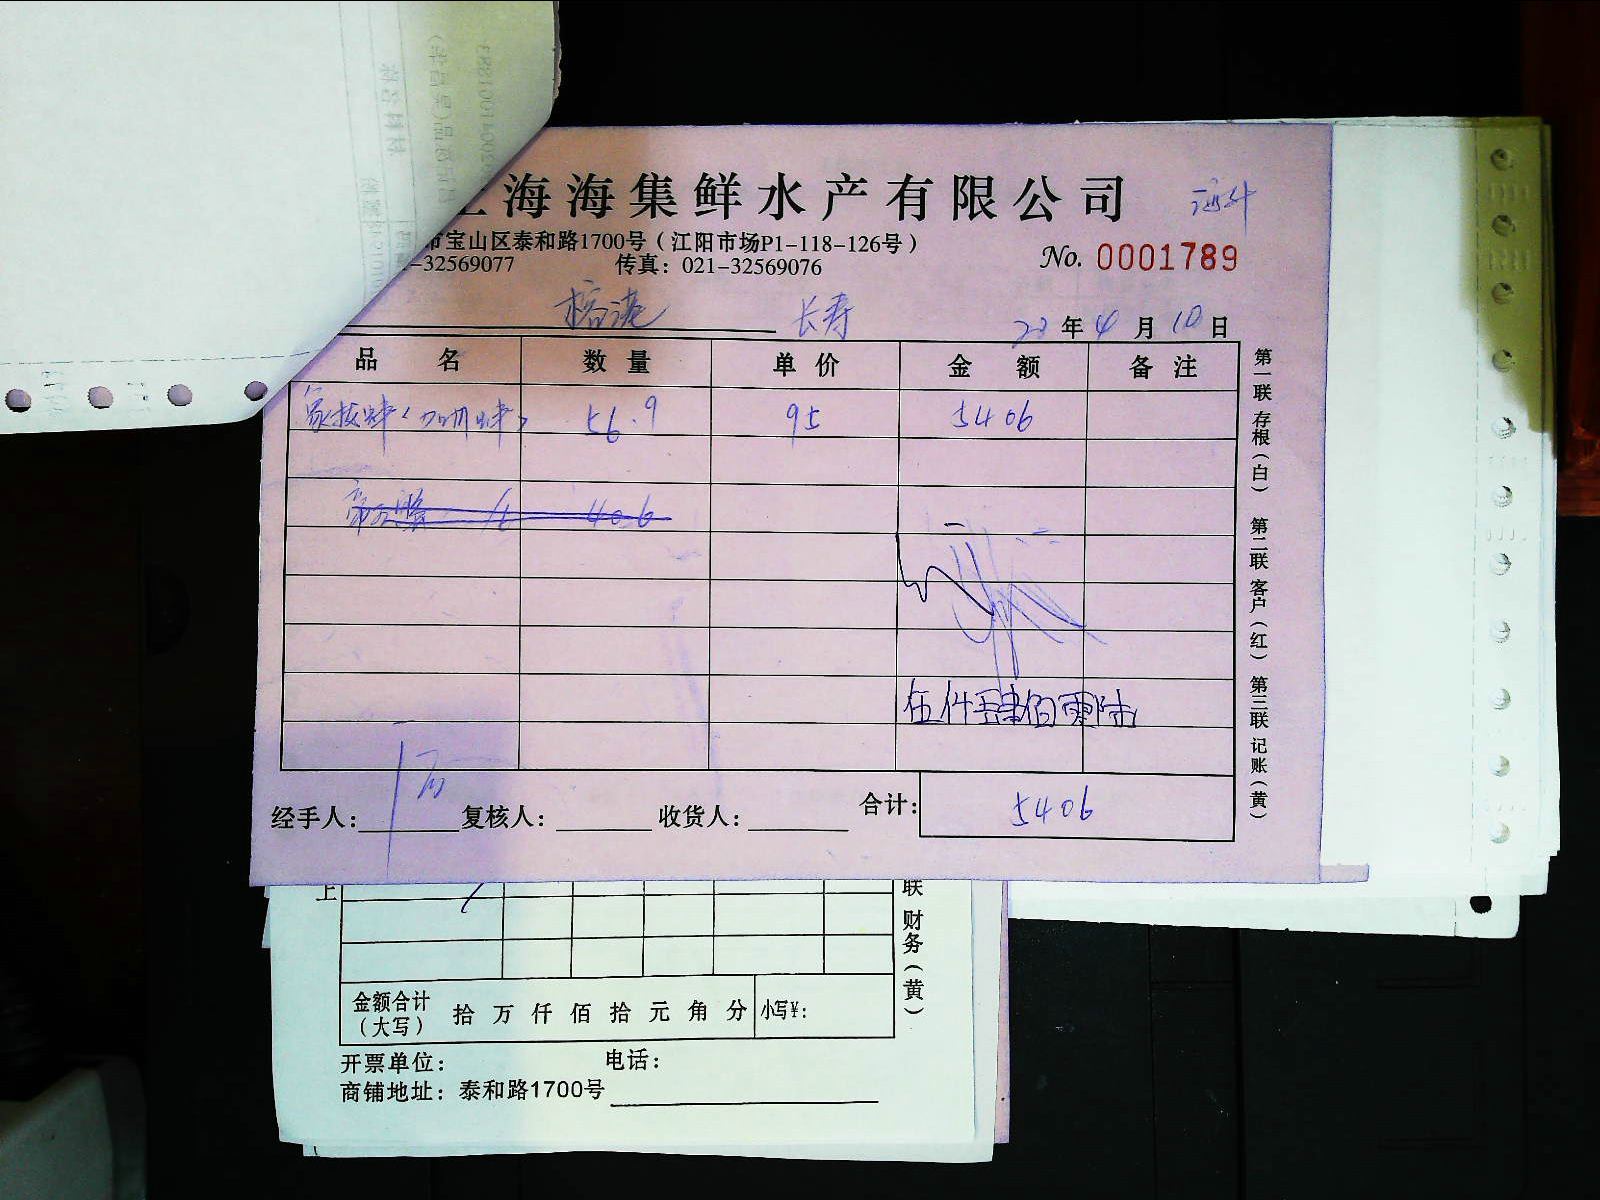 海海集鲜水产有限公司
市宝山区泰和路1700号（江阳市场P1-118-126号）
-32569077 传真：021-32569076
No. 0001789
榕港 长寿
年4月10日
品 名 数 量 单 价 金 额 备 注
56.9 95 5406
406
伍仟肆佰零陆
经手人： 复核人： 收货人： 合计： 5406
第一联 存根（白） 第二联 客户（红） 第三联 记账（黄）
联 财务（黄）
金额合计（大写） 拾 万 仟 佰 拾 元 角 分 小写¥：
开票单位： 电话：
商铺地址：泰和路1700号